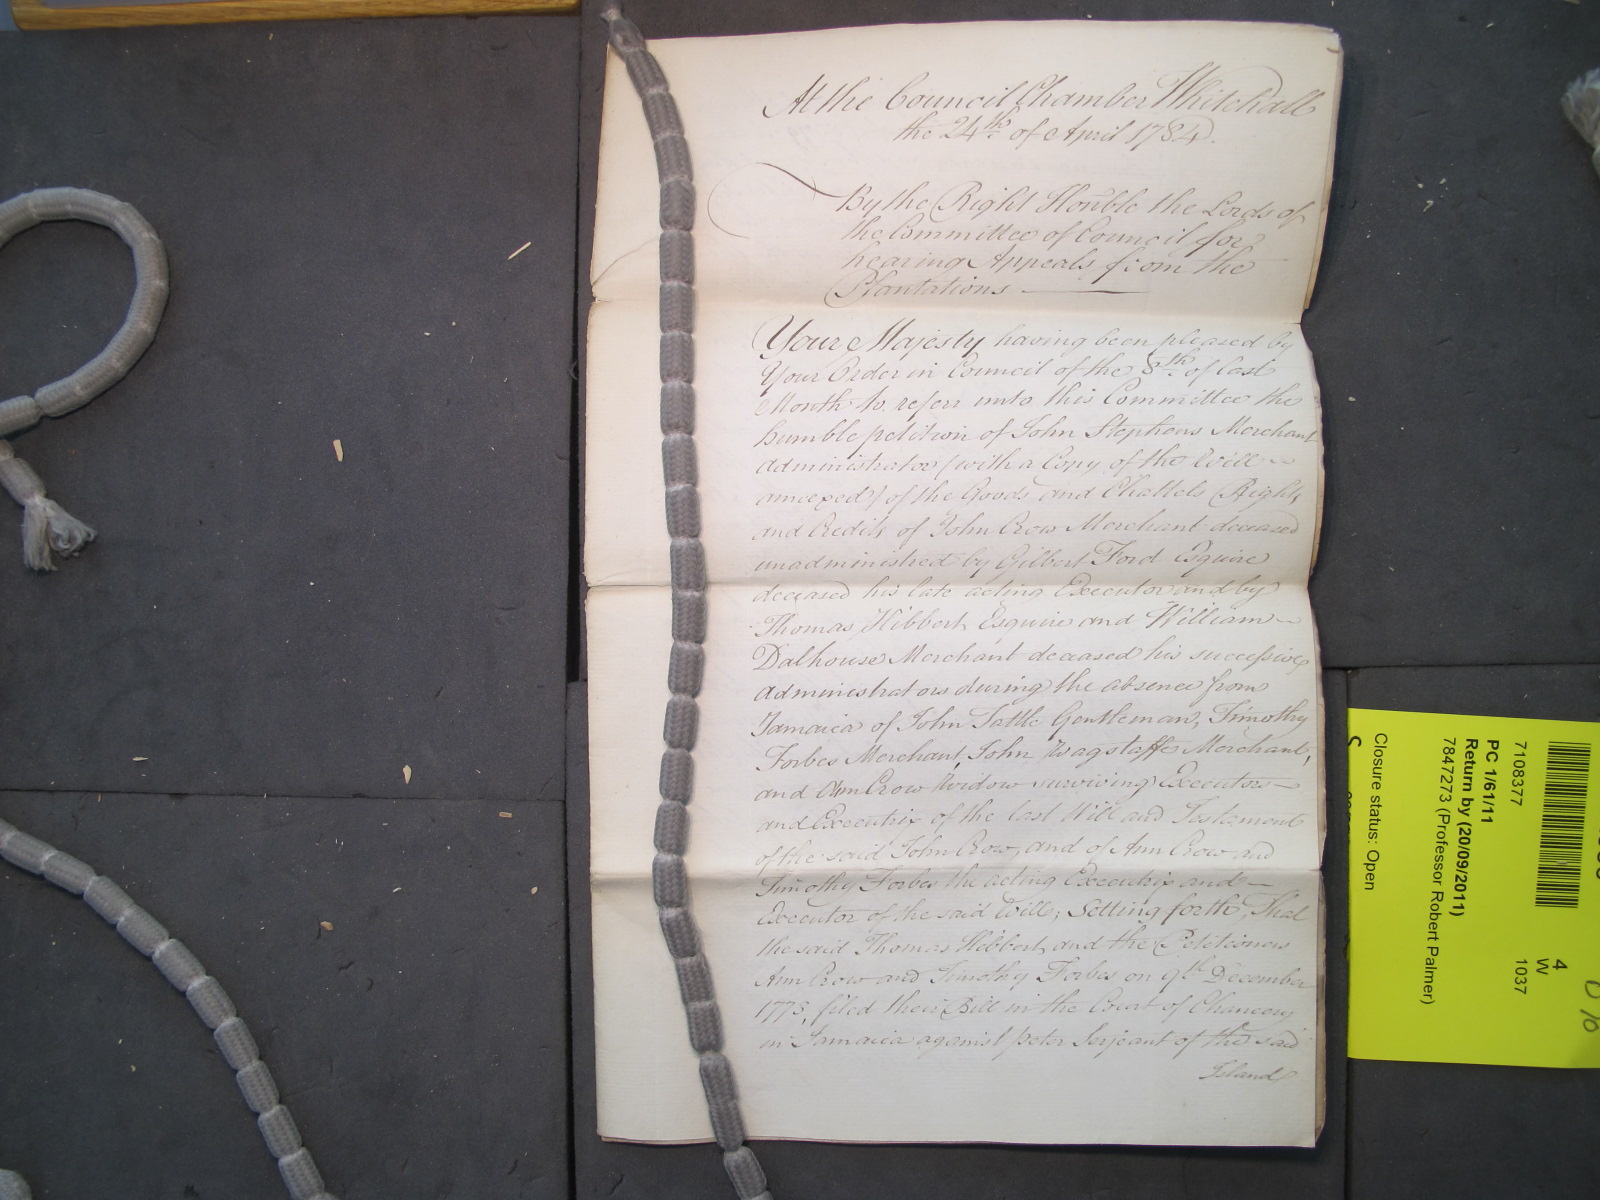 At the Council Chamber Whitehall
the 24th of April 1784.
By the Right Honble the Lords of
the Committee of Council for
hearing Appeals from the
Plantations
Your Majesty having been pleased by
Your Order in Council of the 8th of last
Month to referr unto this Committee the
humble petition of John Stephens Merchant
administrator (with a Copy of the Will
annexed) of the Goods and Chattels Rights
and Credits of John Crow Merchant deceased
unadministred by Gilbert Ford Esquire
deceased his late acting Executor and by
Thomas Hibbert Esquire and William
Dalhouse Merchant deceased his successive
administrators during the absence from
Jamaica of John Tattle Gentleman, Timothy
Forbes Merchant, John Wagstaffe Merchant,
and Ann Crow Widow surviving Executors
and Executrix of the last Will and Testament
of the said John Crow, and of Ann Crow and
Timothy Forbes the acting Executrix and
Executor of the said Will; Setting forth, That
the said Thomas Hibbert, and the Petitioners
Ann Crow and Timothy Forbes on 9th December
1773, filed their Bill in the Court of Chancery
in Jamaica against peter Serjeant of the said
Island
4
W
1037
7108377
PC 1/61/11
Return by (20/09/2011)
7847273 (Professor Robert Palmer)
Closure status: Open